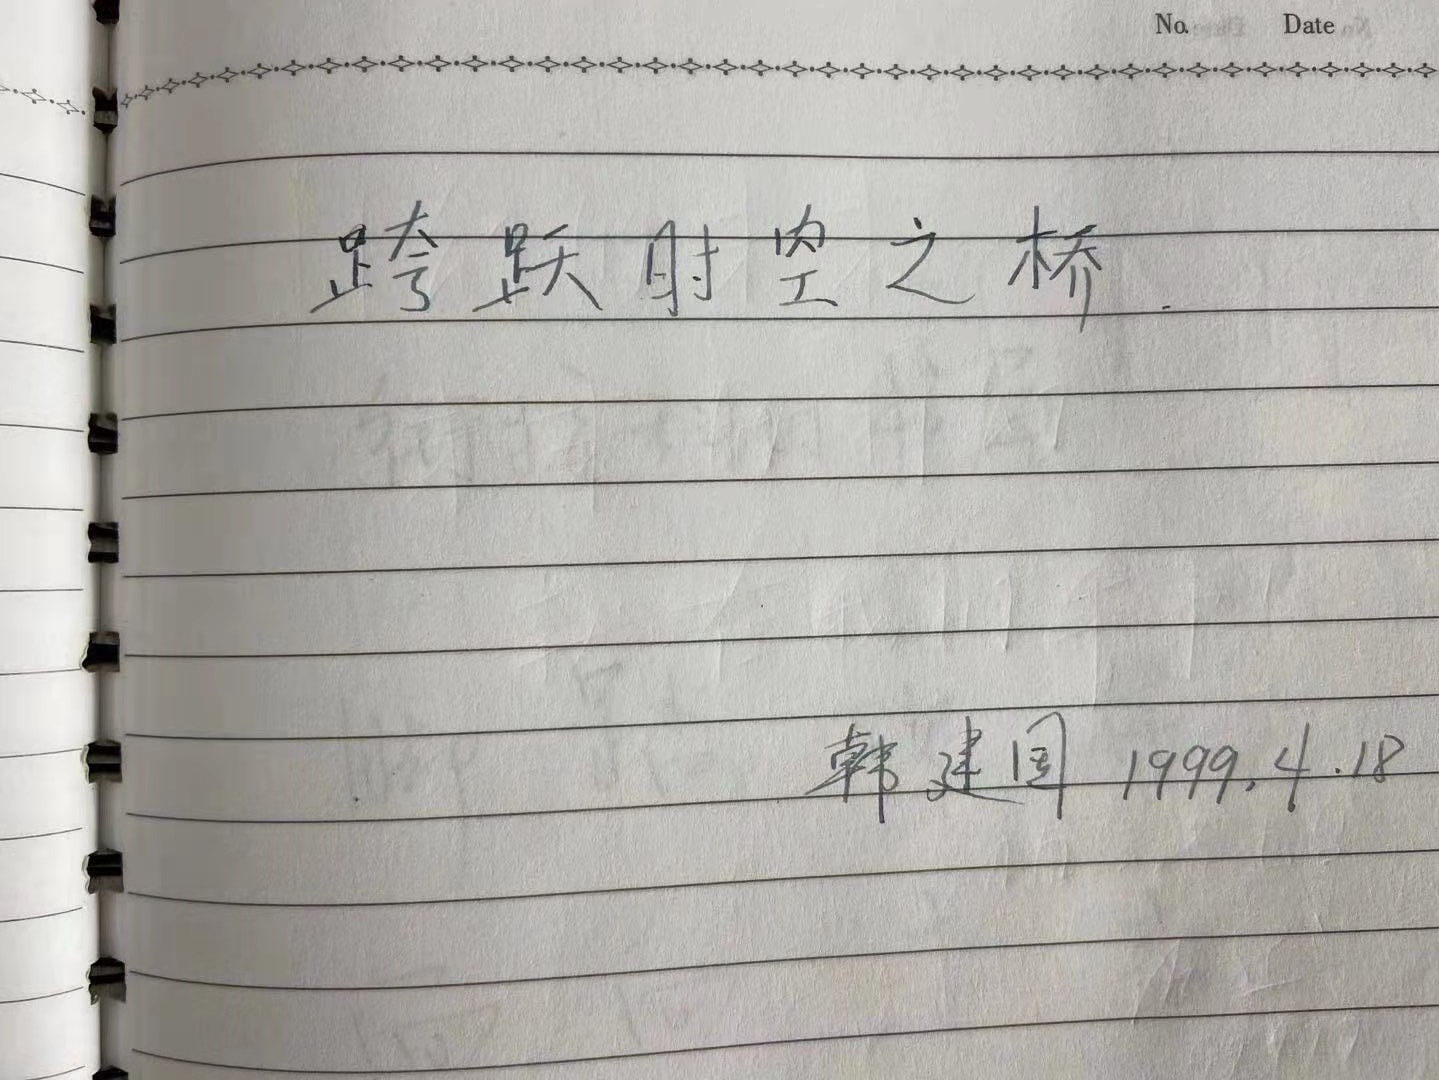 No. Date
跨跃时空之桥.
韩建国 1999.4.18